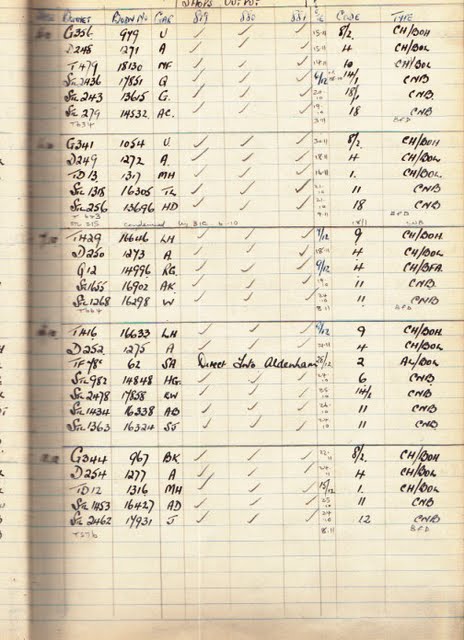 SHOPS
BONNET BODY NO GAR 849 850 851 CODE TYPE
G356 979 U ✓ ✓ ✓ 15-11 8/2 CH/BOH
D248 1271 A ✓ ✓ ✓ 15-11 4 CH/BOL
T479 18130 NF ✓ ✓ ✓ 10 CH/BOL
STL 2436 17851 Q ✓ ✓ ✓ 14/1 CNB
STL 243 13615 G. ✓ ✓ ✓ 18/1 CNB
STL 279 14532 AC. ✓ ✓ ✓ 18 CNB
BFD
G341 1054 U ✓ ✓ ✓ 8/2 CH/BOH
D249 1272 A. ✓ ✓ ✓ 18-11 4 CH/BOL
TD13 1317 MH ✓ ✓ ✓ 1. CH/BOL
STL 1318 16305 TL ✓ ✓ ✓ 11 CNB
STL 256 13696 HD ✓ ✓ ✓ 18 CNB
9-11 BFD
condemned CNB
TH29 16646 LH ✓ ✓ ✓ 9 CH/BOH
D250 1273 A ✓ ✓ ✓ 18-11 4 CH/BOL
G12 14996 RG ✓ ✓ ✓ 4 CH/BFA
STL 1655 16902 AK ✓ ✓ ✓ 11 CNB
STL 1268 16298 W ✓ ✓ ✓ 11 CNB
8-11 BFD
TH16 16633 LH ✓ ✓ ✓ 9 CH/BOH
D252 1275 A ✓ ✓ ✓ 4 CH/BOL
TF78c 62 SA Direct Into Aldenham 25/12 2 AL/BOL
STL 982 14848 HG ✓ ✓ ✓ 6 CNB
STL 2478 17858 RW ✓ ✓ ✓ 14/2 CNB
STL 1434 16338 AB ✓ ✓ ✓ 11 CNB
STL 1363 16324 SJ ✓ ✓ ✓ 11 CNB
G344 967 BK ✓ ✓ ✓ 8/2 CH/BOH
D254 1277 A ✓ ✓ ✓ 4 CH/BOL
TD12 1316 MH ✓ ✓ ✓ 15/12 1. CH/BOL
STL 1453 16427 AD ✓ ✓ ✓ 11 CNB
STL 2462 17931 J ✓ ✓ ✓ 12 CNB
8-11 BFD